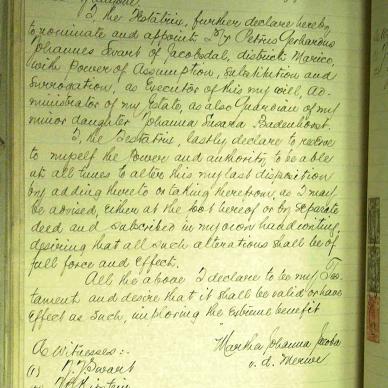 I, the Testatrix, further declare hereby
to nominate and appoint My Petrus Gerhardus
Johannes Swart of Jacobsdal, district Marico,
with Power of Assumption, Substitution and
Surrogation, as Executor of this my will, Ad-
ministrator of my Estate, as also Guardian of my
minor daughter Johanna Susara Badenhorst.
I, the Testatrix, lastly declare to reserve
to myself the Power and authority, to be able
at all times to alter this my last disposition
by adding thereto or taking therefrom, as I may
be advised, either at the foot hereof or by separate
deed and subscribed in my own handwriting,
desiring that all such alterations shall be of
full force and effect.
All the above I declare to be my Tes-
tament and desire that it shall be valid or have
effect as such, imploring the extreme benefit
Martha Johanna Jacoba
v. d. Merwe
As Witnesses:-
(1) Swart